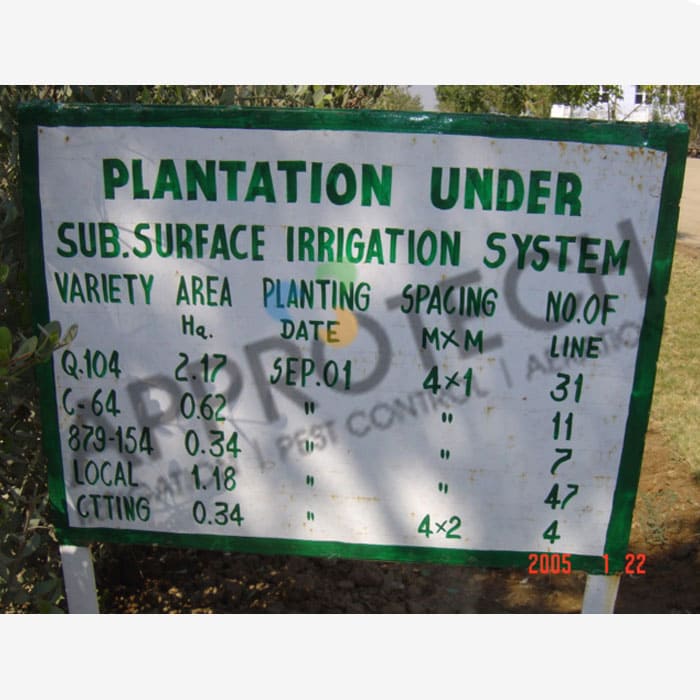 PLANTATION UNDER
SUB.SURFACE IRRIGATION SYSTEM
VARIETY AREA PLANTING SPACING NO.OF
Ha. DATE M×M LINE
Q.104 2.17 SEP.01 4×1 31
C-64 0.62 " " 11
879-154 0.34 " " 7
LOCAL 1.18 " " 47
CTTING 0.34 " 4×2 4
2005 1 22
APPROTECH
PEST CONTROL |